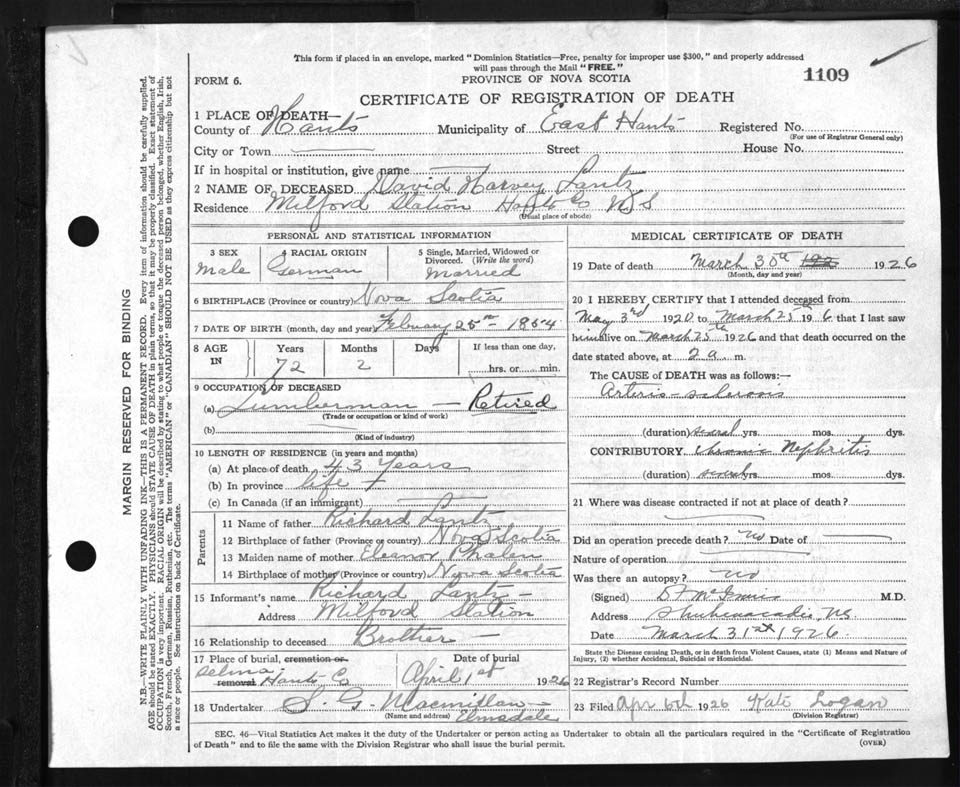 This form if placed in an envelope, marked "Dominion Statistics—Free, penalty for improper use $300," and properly addressed
will pass through the Mail "FREE."
FORM 6.
PROVINCE OF NOVA SCOTIA
1109
CERTIFICATE OF REGISTRATION OF DEATH
1 PLACE OF DEATH—
County of Hants Municipality of East Hants Registered No.
(For use of Registrar General only)
City or Town Street House No.
If in hospital or institution, give name
2 NAME OF DECEASED David Harvey Lantz
Residence Milford Station Hants Co N.S
(Usual place of abode)
PERSONAL AND STATISTICAL INFORMATION
3 SEX Male
4 RACIAL ORIGIN German
5 Single, Married, Widowed or
Divorced. (Write the word)
Married
6 BIRTHPLACE (Province or country) Nova Scotia
7 DATE OF BIRTH (month, day and year) February 25th 1854
8 AGE IN Years Months Days If less than one day,
72 2 hrs. or min.
9 OCCUPATION OF DECEASED
(a) Lumberman — Retired
(Trade or occupation or kind of work)
(b)
(Kind of industry)
10 LENGTH OF RESIDENCE (in years and months)
(a) At place of death 43 Years
(b) In province life
(c) In Canada (if an immigrant)
Parents
11 Name of father Richard Lantz
12 Birthplace of father (Province or country) Nova Scotia
13 Maiden name of mother Eleanor Phalen
14 Birthplace of mother (Province or country) Nova Scotia
15 Informant's name Richard Lantz
Address Milford Station
16 Relationship to deceased Brother
17 Place of burial, cremation or Date of burial
Selma
removal Hants Co April 1st 1926
18 Undertaker S. G. Macmillan
(Name and address) Elmsdale
MEDICAL CERTIFICATE OF DEATH
19 Date of death March 30th 192 1926
(Month, day and year)
20 I HEREBY CERTIFY that I attended deceased from
May 3rd 1920 to March 25 19 6 that I last saw
him alive on March 25th 1926 and that death occurred on the
date stated above, at 2 a m.
The CAUSE of DEATH was as follows:—
Arterio-sclerosis
(duration) several yrs. mos. dys.
CONTRIBUTORY Chronic Nephritis
(duration) several yrs. mos. dys.
21 Where was disease contracted if not at place of death?
Did an operation precede death? no Date of
Nature of operation
Was there an autopsy? no
(Signed) M.D.
Address Shubenacadie, NS
Date March 31st 1926.
State the Disease causing Death, or in death from Violent Causes, state (1) Means and Nature of
Injury, (2) whether Accidental, Suicidal or Homicidal.
22 Registrar's Record Number
23 Filed Apr 6th 1926 Kate Logan
(Division Registrar)
SEC. 46—Vital Statistics Act makes it the duty of the Undertaker or person acting as Undertaker to obtain all the particulars required in the "Certificate of Registration
of Death" and to file the same with the Division Registrar who shall issue the burial permit.
(OVER)
MARGIN RESERVED FOR BINDING
N.B.—WRITE PLAINLY WITH UNFADING INK—THIS IS A PERMANENT RECORD. Every item of information should be carefully supplied.
AGE should be stated EXACTLY. PHYSICIANS should STATE CAUSE OF DEATH in plain terms, so that it may be properly classified. Exact statement of
OCCUPATION is very important. RACIAL ORIGIN will be described by stating to what people or tongue the deceased person belonged, whether English, Irish,
Scotch, French, German, Russian, Ruthenian, etc. The terms "AMERICAN" or "CANADIAN" SHOULD NOT BE USED as they express citizenship but not
a race or people. See instructions on back of Certificate.